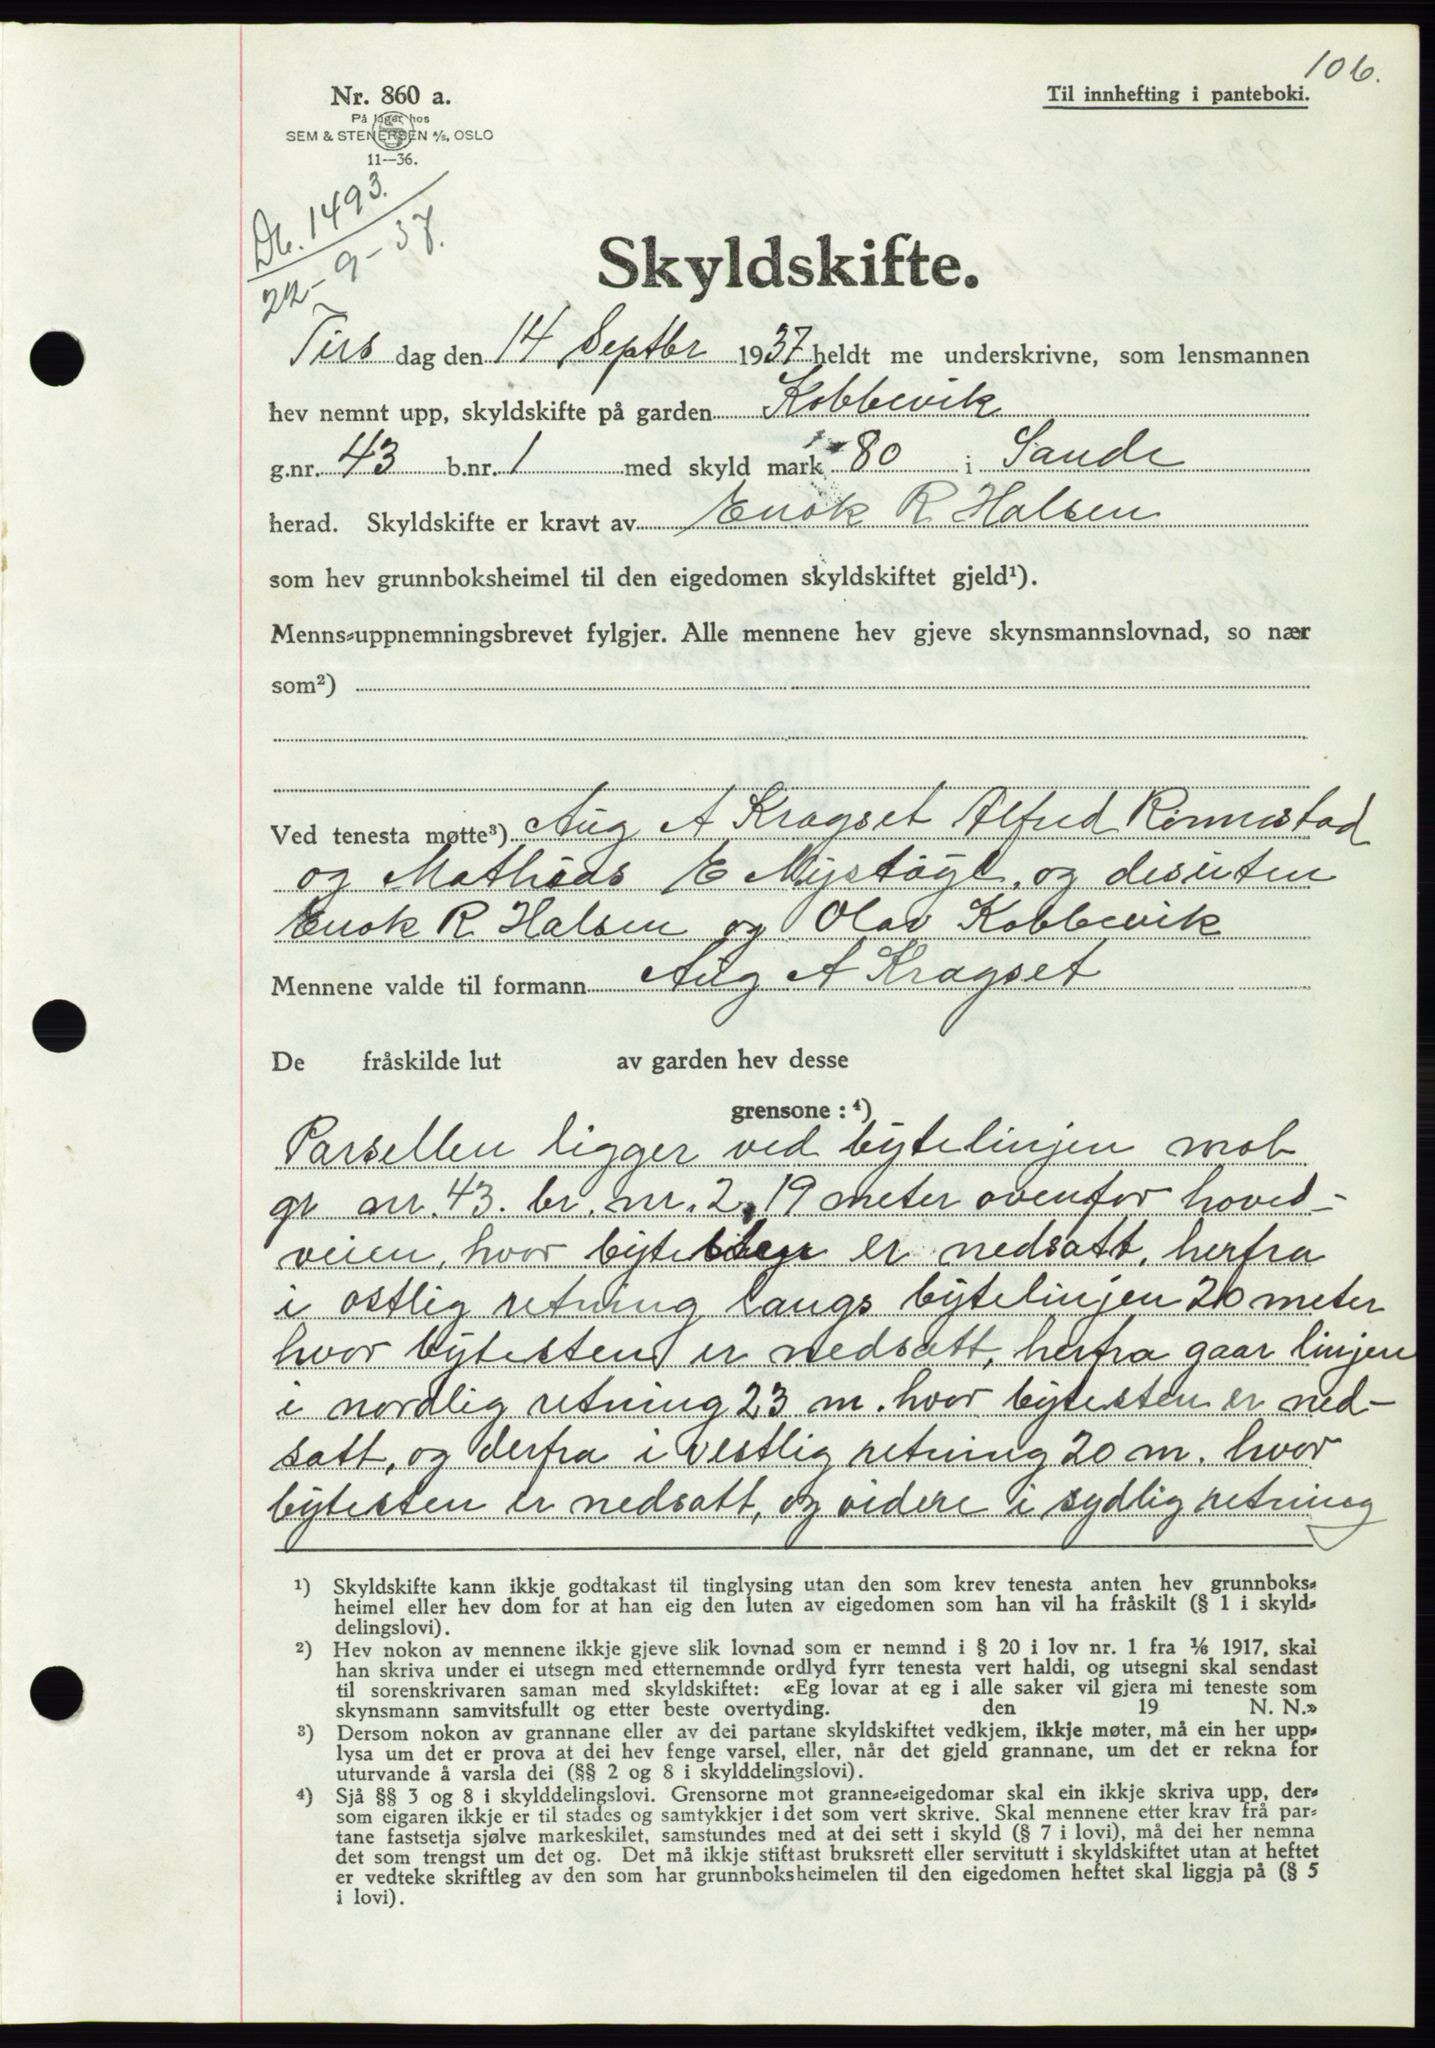 106.
Nr. 860 a.
På lager hos
SEM & STENERSEN A/S, OSLO
11--36.
Til innhefting i panteboki.
Db. 1493.
22-9-37.
Skyldskifte.
Tirsdag den 14 Septbr 1937 heldt me underskrivne, som lensmannen
hev nemnt upp, skyldskifte på garden Kobbevik
g.nr. 43 b.nr. 1 med skyld mark 80 i Sande
herad. Skyldskifte er kravt av Enok R Halsen
som hev grunnboksheimel til den eigedomen skyldskiftet gjeld¹).
Menns-uppnemningsbrevet fylgjer. Alle mennene hev gjeve skynsmannslovnad, so nær
som²)
Ved tenesta møtte³) Aug A Kragset Alfred Rønnestad
og Mathias E Nystøyl, og desuten
Enok R Halsen og Olav Kobbevik
Mennene valde til formann Aug A Kragset
De fråskilde lut av garden hev desse
grensone: ⁴)
Parsellen ligger ved bytelinjen mot
gr nr. 43. br. nr. 2, 19 meter ovenfor hoved-
veien, hvor er nedsatt, herfra
i ostlig retning langs bytelinjen 20 meter
hvor bytesten er nedsatt, herfra gaar linjen
i nordlig retning 23 m. hvor bytesten er ned-
satt, og derfra i vestlig retning 20 m. hvor
bytesten er nedsatt, og videre i sydlig retning
¹) Skyldskifte kann ikkje godtakast til tinglysing utan den som krev tenesta anten hev grunnboks-
heimel eller hev dom for at han eig den luten av eigedomen som han vil ha fråskilt (§ 1 i skyld-
delingslovi).
²) Hev nokon av mennene ikkje gjeve slik lovnad som er nemnd i § 20 i lov nr. 1 fra 1/6 1917, skal
han skriva under ei utsegn med etternemnde ordlyd fyrr tenesta vert haldi, og utsegni skal sendast
til sorenskrivaren saman med skyldskiftet: «Eg lovar at eg i alle saker vil gjera mi teneste som
skynsmann samvitsfullt og etter beste overtyding. den 19 N. N.»
³) Dersom nokon av grannane eller av dei partane skyldskiftet vedkjem, ikkje møter, må ein her upp-
lysa um det er prova at dei hev fenge varsel, eller, når det gjeld grannane, um det er rekna for
uturvande å varsla dei (§§ 2 og 8 i skylddelingslovi).
⁴) Sjå §§ 3 og 8 i skylddelingslovi. Grensorne mot granne-eigedomar skal ein ikkje skriva upp, der-
som eigaren ikkje er til stades og samtykkjer i det som vert skrive. Skal mennene etter krav frå par-
tane fastsetja sjølve markeskilet, samstundes med at dei sett i skyld (§ 7 i lovi), må dei her nemna
det som trengst um det og. Det må ikkje stiftast bruksrett eller servitutt i skyldskiftet utan at heftet
er vedteke skriftleg av den som har grunnboksheimelen til den eigedomen heftet skal liggja på (§ 5
i lovi).